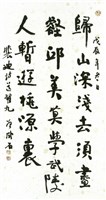 戊辰年
歸山深淺去須盡
壑邱美莫學武陵
人暫遊桃源裏
裴迪詩送崔九